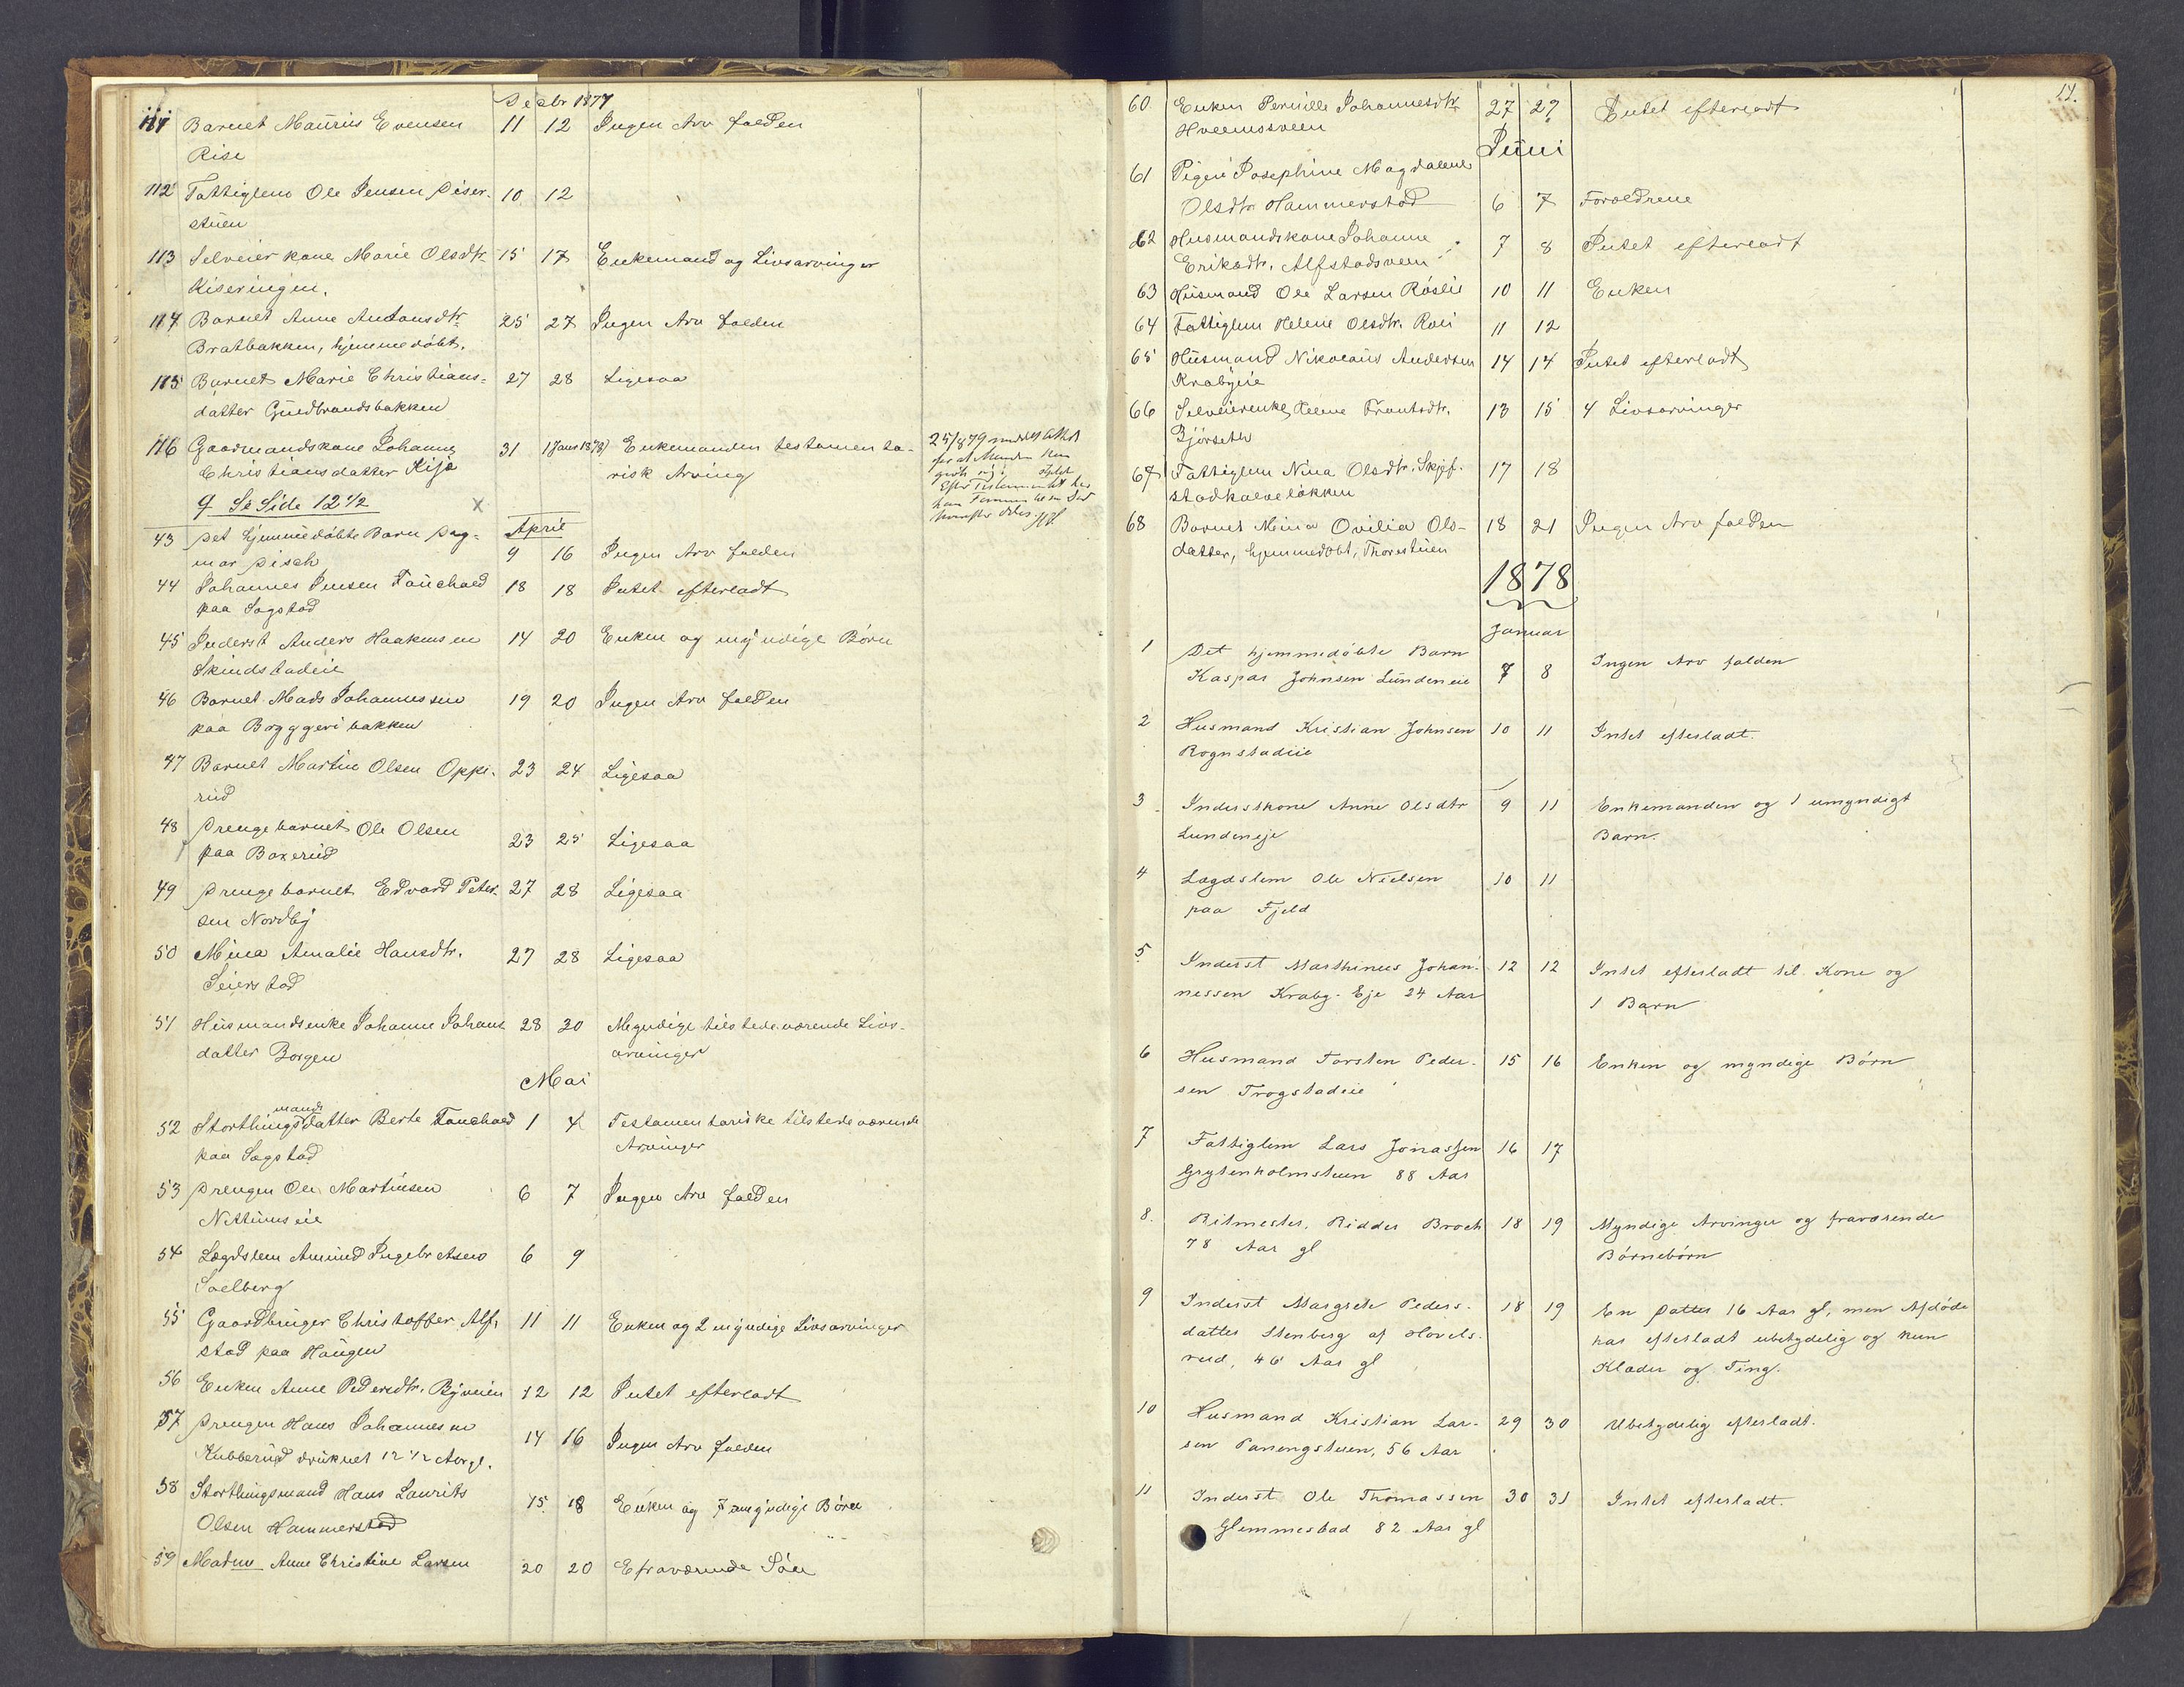 Decbr 1877
111 Barnet Maurius Evensen 11 12 Ingen Arv falden
Rise
112 Fattiglem Ole Jensen Diser- 10 12
stuen
113 Selveierkone Marie Olsdtr. 15 17 Enkemand og Livsarvinger
Kiseringen.
114 Barnet Anne Antonsdtr. 25 27 Ingen Arv falden
Bratbakken, hjemmedøbt.
115 Barnet Marie Christians- 27 28 Ligesaa
datter Guldbrandsbakken
116 Gaardmandskone Johanne 31 1 Janr 1878 Enkemanden testamenta-
Christiansdatter Kise risk Arving
9 Se Side 12 1/2 x
April
43 Det hjemmedøbte Barn Dag- 9 16 Ingen Arv falden
mar Disch
44 Johannes Jensen Fauchald 18 18 Intet efterladt
paa Sogstad
45 Inderst Anders Haakensen 14 20 Enken og myndige Børn
Skindstadeie
46 Barnet Mads Johannessen 19 20 Ingen Arv falden
paa Bryggeribakken
47 Barnet Martin Olsen Oppe- 23 24 Ligesaa
rud
48 Drengebarnet Ole Olsen 23 25 Ligesaa
paa Boxerud
49 Drengebarnet Edvard Peter- 27 28 Ligesaa
sen Nordby
50 Mina Amalie Hansdtr. 27 28 Ligesaa
Seierstad
51 Husmandsenke Johanne Johans 28 30 Myndige tilstedeværende Livs-
datter Borgen arvinger
Mai
mands
52 Storthingsdatter Berte Fauchald 1 4 Testamentariske tilstedeværende
paa Sogstad Arvinger
53 Drengen Ole Martinsen 6 7 Ingen Arv falden
Nettumseie
54 Lægdslem Amund Ingebretsen 6 9
Soelberg
55 Gaardbruger Christoffer Alf- 11 11 Enken og 2 myndige Livsarvinger
stad paa Haugen
56 Enken Anne Pedersdtr. Byveien 12 12 Intet efterladt
57 Drengen Hans Johannesen 14 16 Ingen Arv falden
Kubberud druknet 12 1/2 Aar gl.
58 Storthingsmand Hans Laurits 15 18 Enken og 7 umyndige Børn
Olsen Hammerstad
59 Madm Anne Christine Larsen 20 20 E fraværende Søn
60. Enken Pernille Johannesdtr. 27 29 Intet efterladt
Hveemsveen
Juni
61 Pigen Josephine Magdalene
Olsdtr. Hammerstad 6 7 Forældrene
62 Husmandskone Johanne 7 8 Intet efterladt
Eriksdtr. Alfstadsveen
63 Husmand Ole Larsen Røslie 10 11 Enken
64 Fattiglem Helene Olsdtr. Roli 11 12
65 Husmand Nikolaus Andersen 14 14 Intet efterladt
Krabyeie
66 Selveierenke Helene Frantsdtr. 13 15 4 Livsarvinger
Gjørseth
67 Fattiglem Nina Olsdtr. Skjef- 17 18
stadkalveløkken
68 Barnet Mina Ovilia Ols- 18 21 Ingen Arv falden
datter, hjemmedøbt, Thorestuen
1878
Januar
1 Det hjemmedøbte Barn
Kaspar Johnsen Lundeneie 7 8 Ingen Arv falden
2 Husmand Kristian Johnsen 10 11 Intet efterladt.
Rognstadeie
3 Inderstkone Anne Olsdtr 9 11 Enkemanden og 1 umyndigt
Lundeneje Barn.
4 Lægdslem Ole Nielsen 10 11
paa Fjeld
5 Inderst Marthinus Johan- 12 12 Intet efterladt til Kone og
nessen Kraby-Eje 24 Aar 1 Barn
6 Husmand Torsten Peder- 15 16 Enken og myndige Børn
sen Trogstadeie
7 Fattiglem Lars Jonassen 16 17
Grytenholmstuen 88 Aar
8. Ritmester, Ridder Broch 18 19 Myndige Arvinger og fraværende
78 Aar gl Børnebørn
9 Inderst Margrete Peders- 18 19 En Datter 16 Aar gl, men Afdøde
datter Stenberg af Hovels- har efterladt ubetydelig og kun
rud, 46 Aar gl Klæder og Ting.
10 Husmand Kristian Lar- 29 30 Ubetydelig efterladt.
sen Panengstuen, 56 Aar
11 Inderst Ole Thomassen 30 31 Intet efterladt.
Glemmestad 82 Aar gl